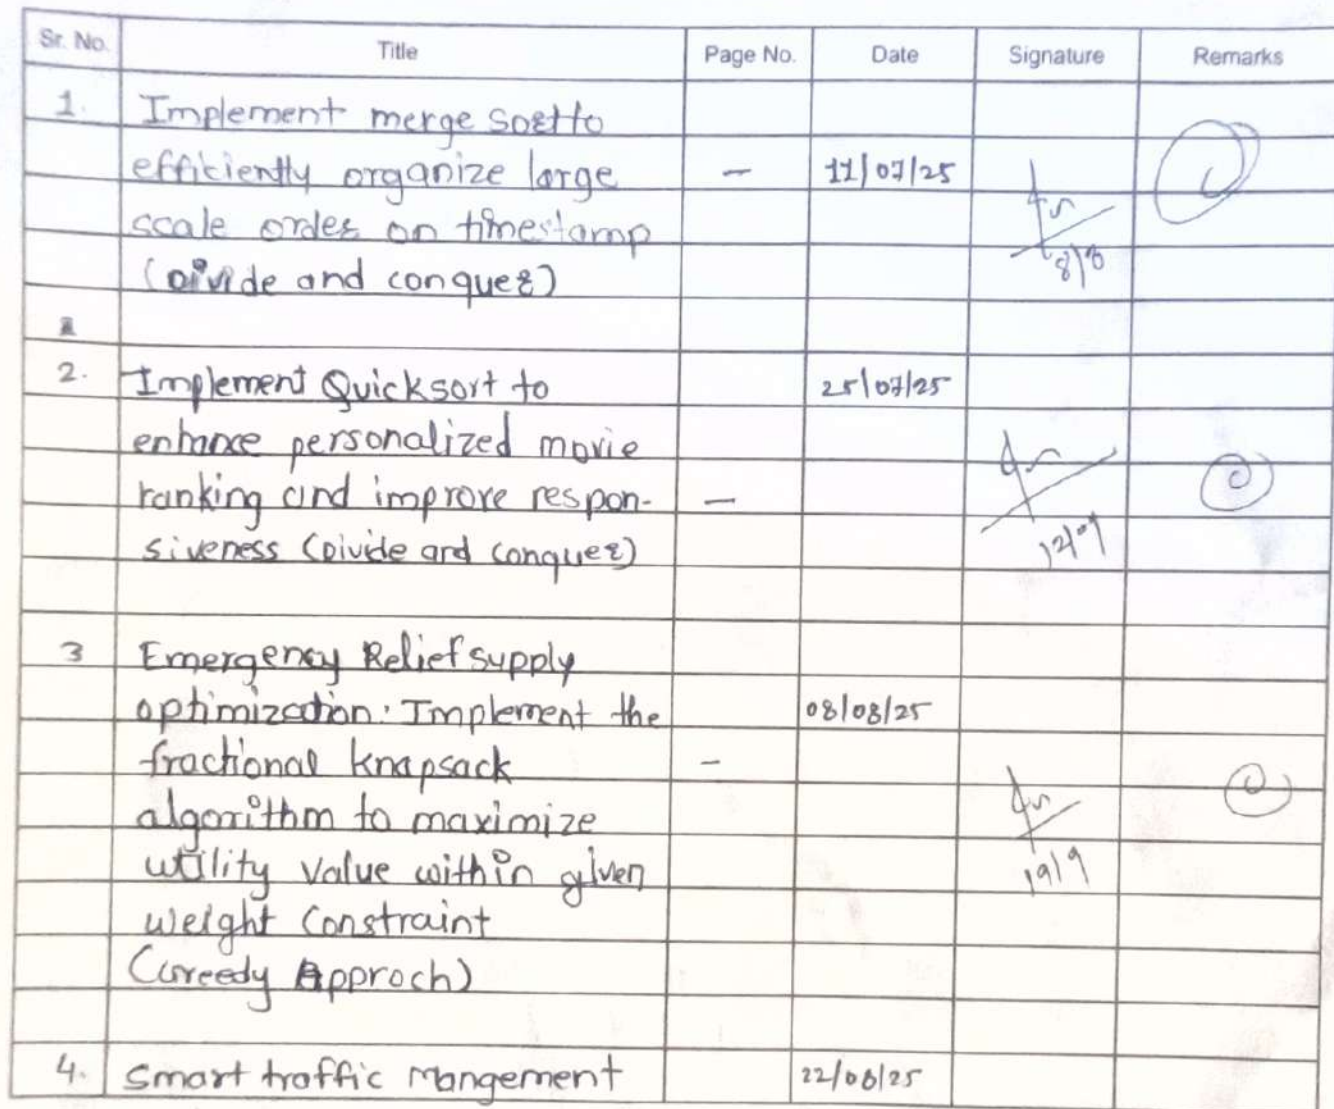 Sr. No. Title Page No. Date Signature Remarks
1. Implement merge sort to
efficiently organize large - 11/07/25
scale order on timestamp
(Divide and conquer) 8/8
2. Implement Quicksort to 25/07/25
enhance personalized movie
ranking and improve respon- -
siveness (Divide and conquer) 12/9
3 Emergency Relief supply
optimization: Implement the 08/08/25
fractional knapsack -
algorithm to maximize
utility value within given 19/9
weight constraint
(Greedy Approch)
4. Smart traffic Mangement 22/08/25